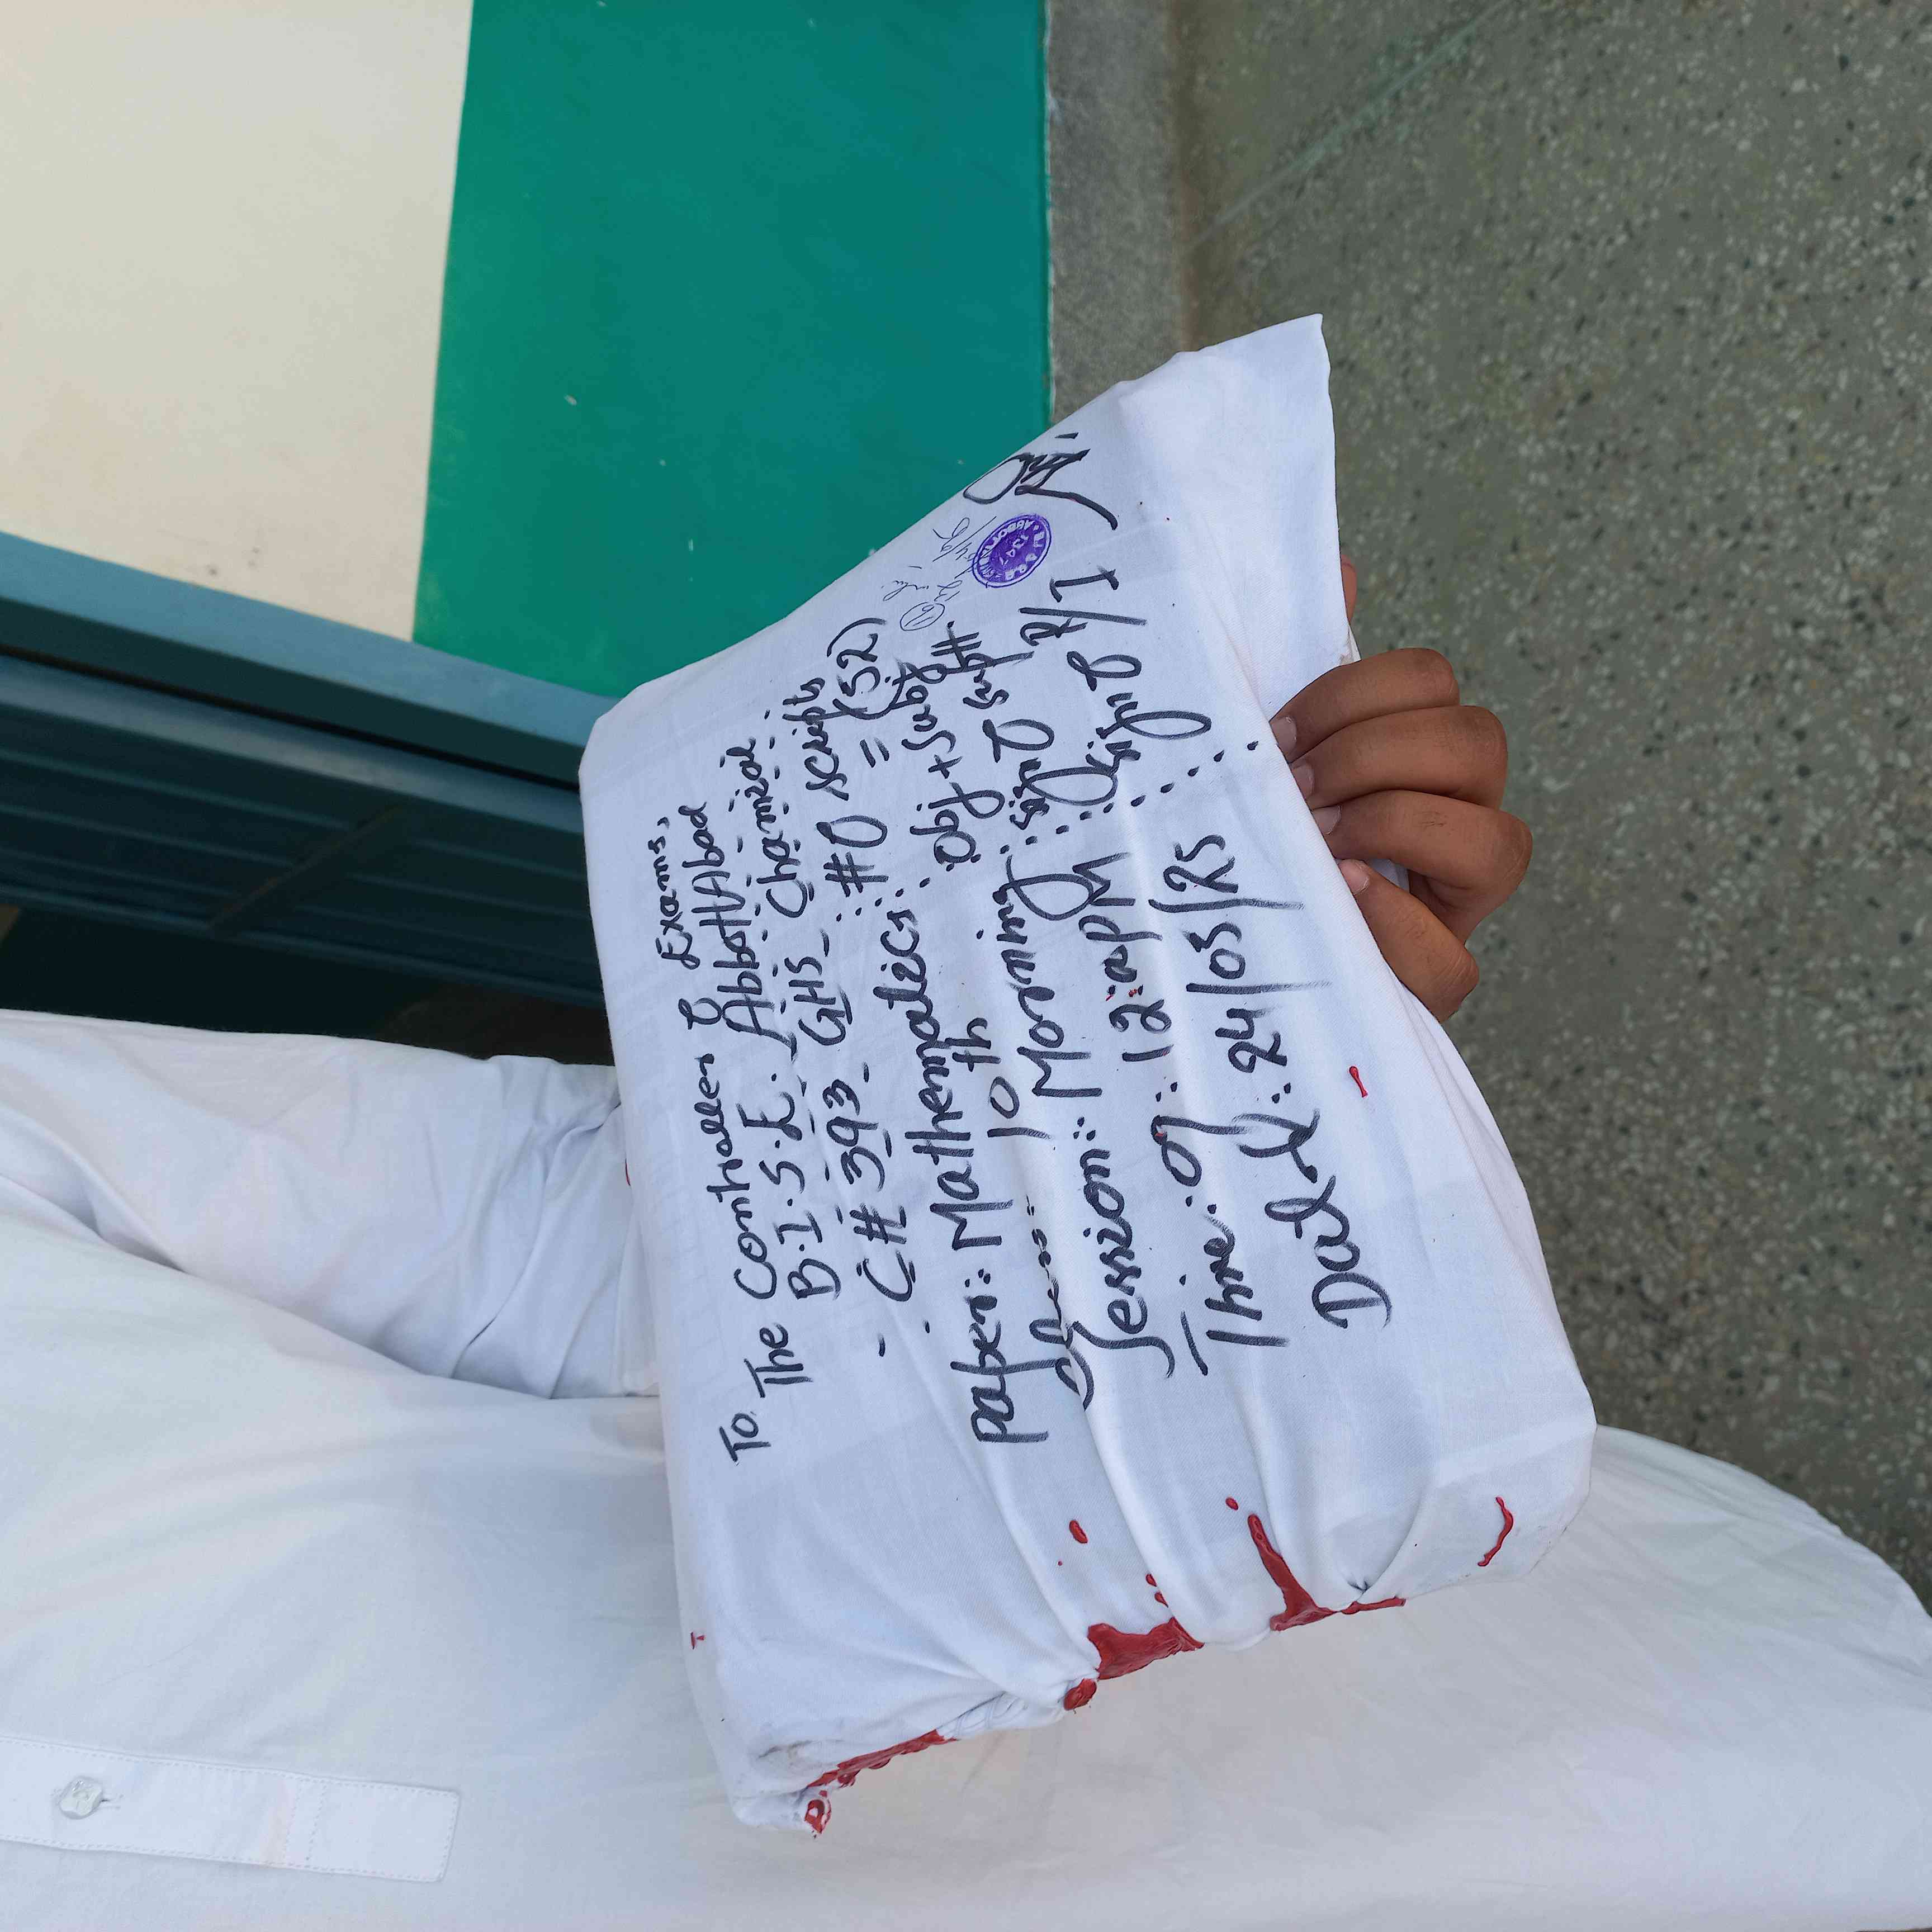 To. The Controller of Exams,
B.I.S.E. Abbottabad
- C# 393 - GHS - Chamizal
# of scripts = (52)
paper: Mathematics: Obj + Subj
10th
Session: Morning: Sign of Supt.
Time: 09: 12: apM: Sign of R/I
Date of: 24/03/25
1347